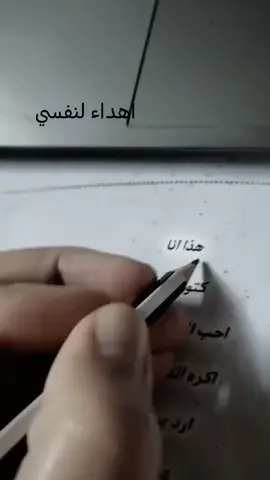 اهداء لنفسي
هذا انا
كتو
احب
اكره
ارد